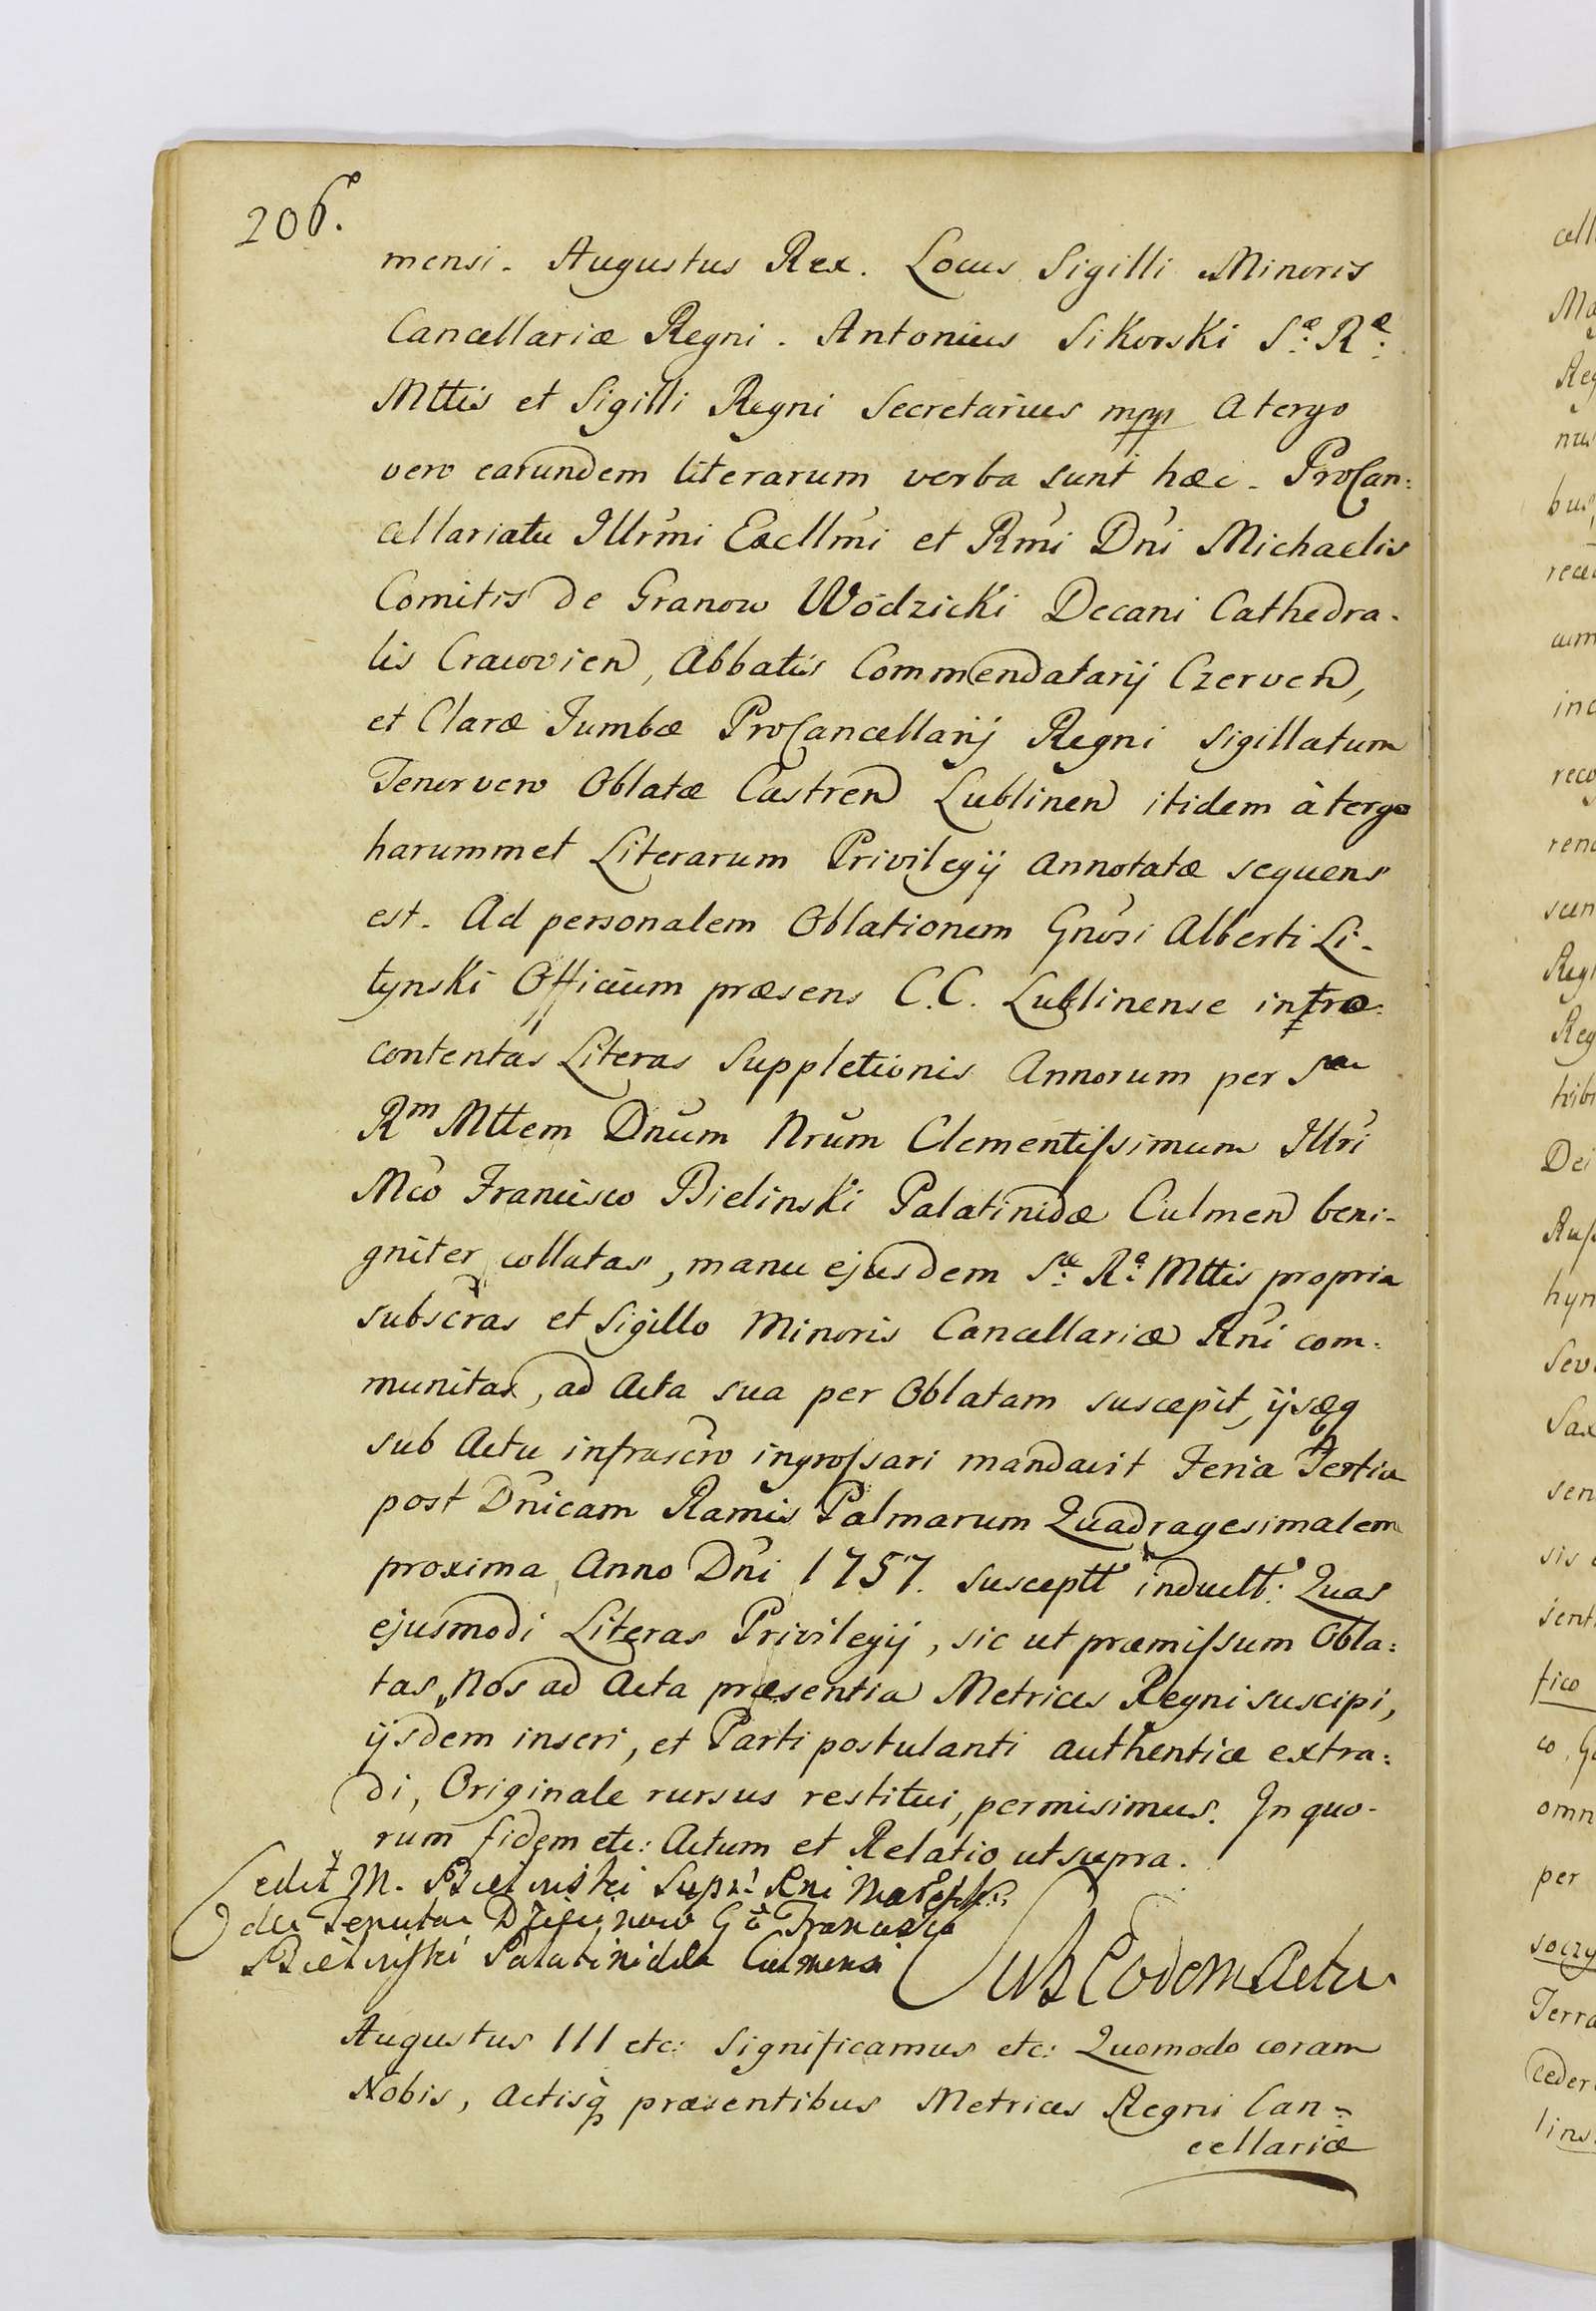 206.
mensi. Augustus Rex. Locus Sigilli Minoris
Cancellariæ Regni. Antonius Sikorski Sæ: Ræ:
Mttis et Sigilli Regni Secretarius mpp A tergo
vero earundem literarum verba sunt hæc. ProCan:
cellariatu Illrmi Excllmi et Rmi Dni Michaelis
Comitis de Granow Wodzicki Decani Cathedra-
lis Cracovien, Abbatis Commendatarij Czerven,
et Claræ Tumbæ ProCancellarij Regni sigillatum
Tenor vero Oblatæ Castren Lublinen itidem à tergo
harummet Literarum Privilegij annotatæ sequens
est. Ad personalem Oblationem Gnosi Alberti Li-
tynski Officium præsens C.C. Lublinense intro:
contentas Literas Suppletionis Annorum per Sam
Rm Mttem Dnum Nrum Clementissimum Illri
Mco Francisco Bielinski Palatinidæ Culmen beni-
gniter collatas, manu ejusdem Sæ: Ræ: Mttis propria
subscras et Sigillo Minoris Cancellariæ Rni com:
munitas, ad Acta sua per Oblatam suscepit, ijsq
sub Actu infrascro ingrossari mandavit Feria Tertia
post Dnicam Ramis Palmarum Quadragesimalem
proxima, Anno Dni 1757. susceptt inductt: Quas
ejusmodi Literas Privilegij, sic ut præmissum Obla:
tas, Nos ad Acta præsentia Metrices Regni suscipi,
ijsdem inseri, et Parti postulanti authentice extra:
di, Originale rursus restitui, permisimus. In quo-
rum fidem etc: Actum et Relatio ut supra.
Cedit M. Bielinski Supr: Rni Mareschl:
de Tenuta Gô Francisco
Bielinski Palatinidæ Culmensi
Sub Eodem Actu
Augustus III etc: Significamus etc: Quomodo coram
Nobis, Actisq præsentibus Metrices Regni Can=
cellariæ